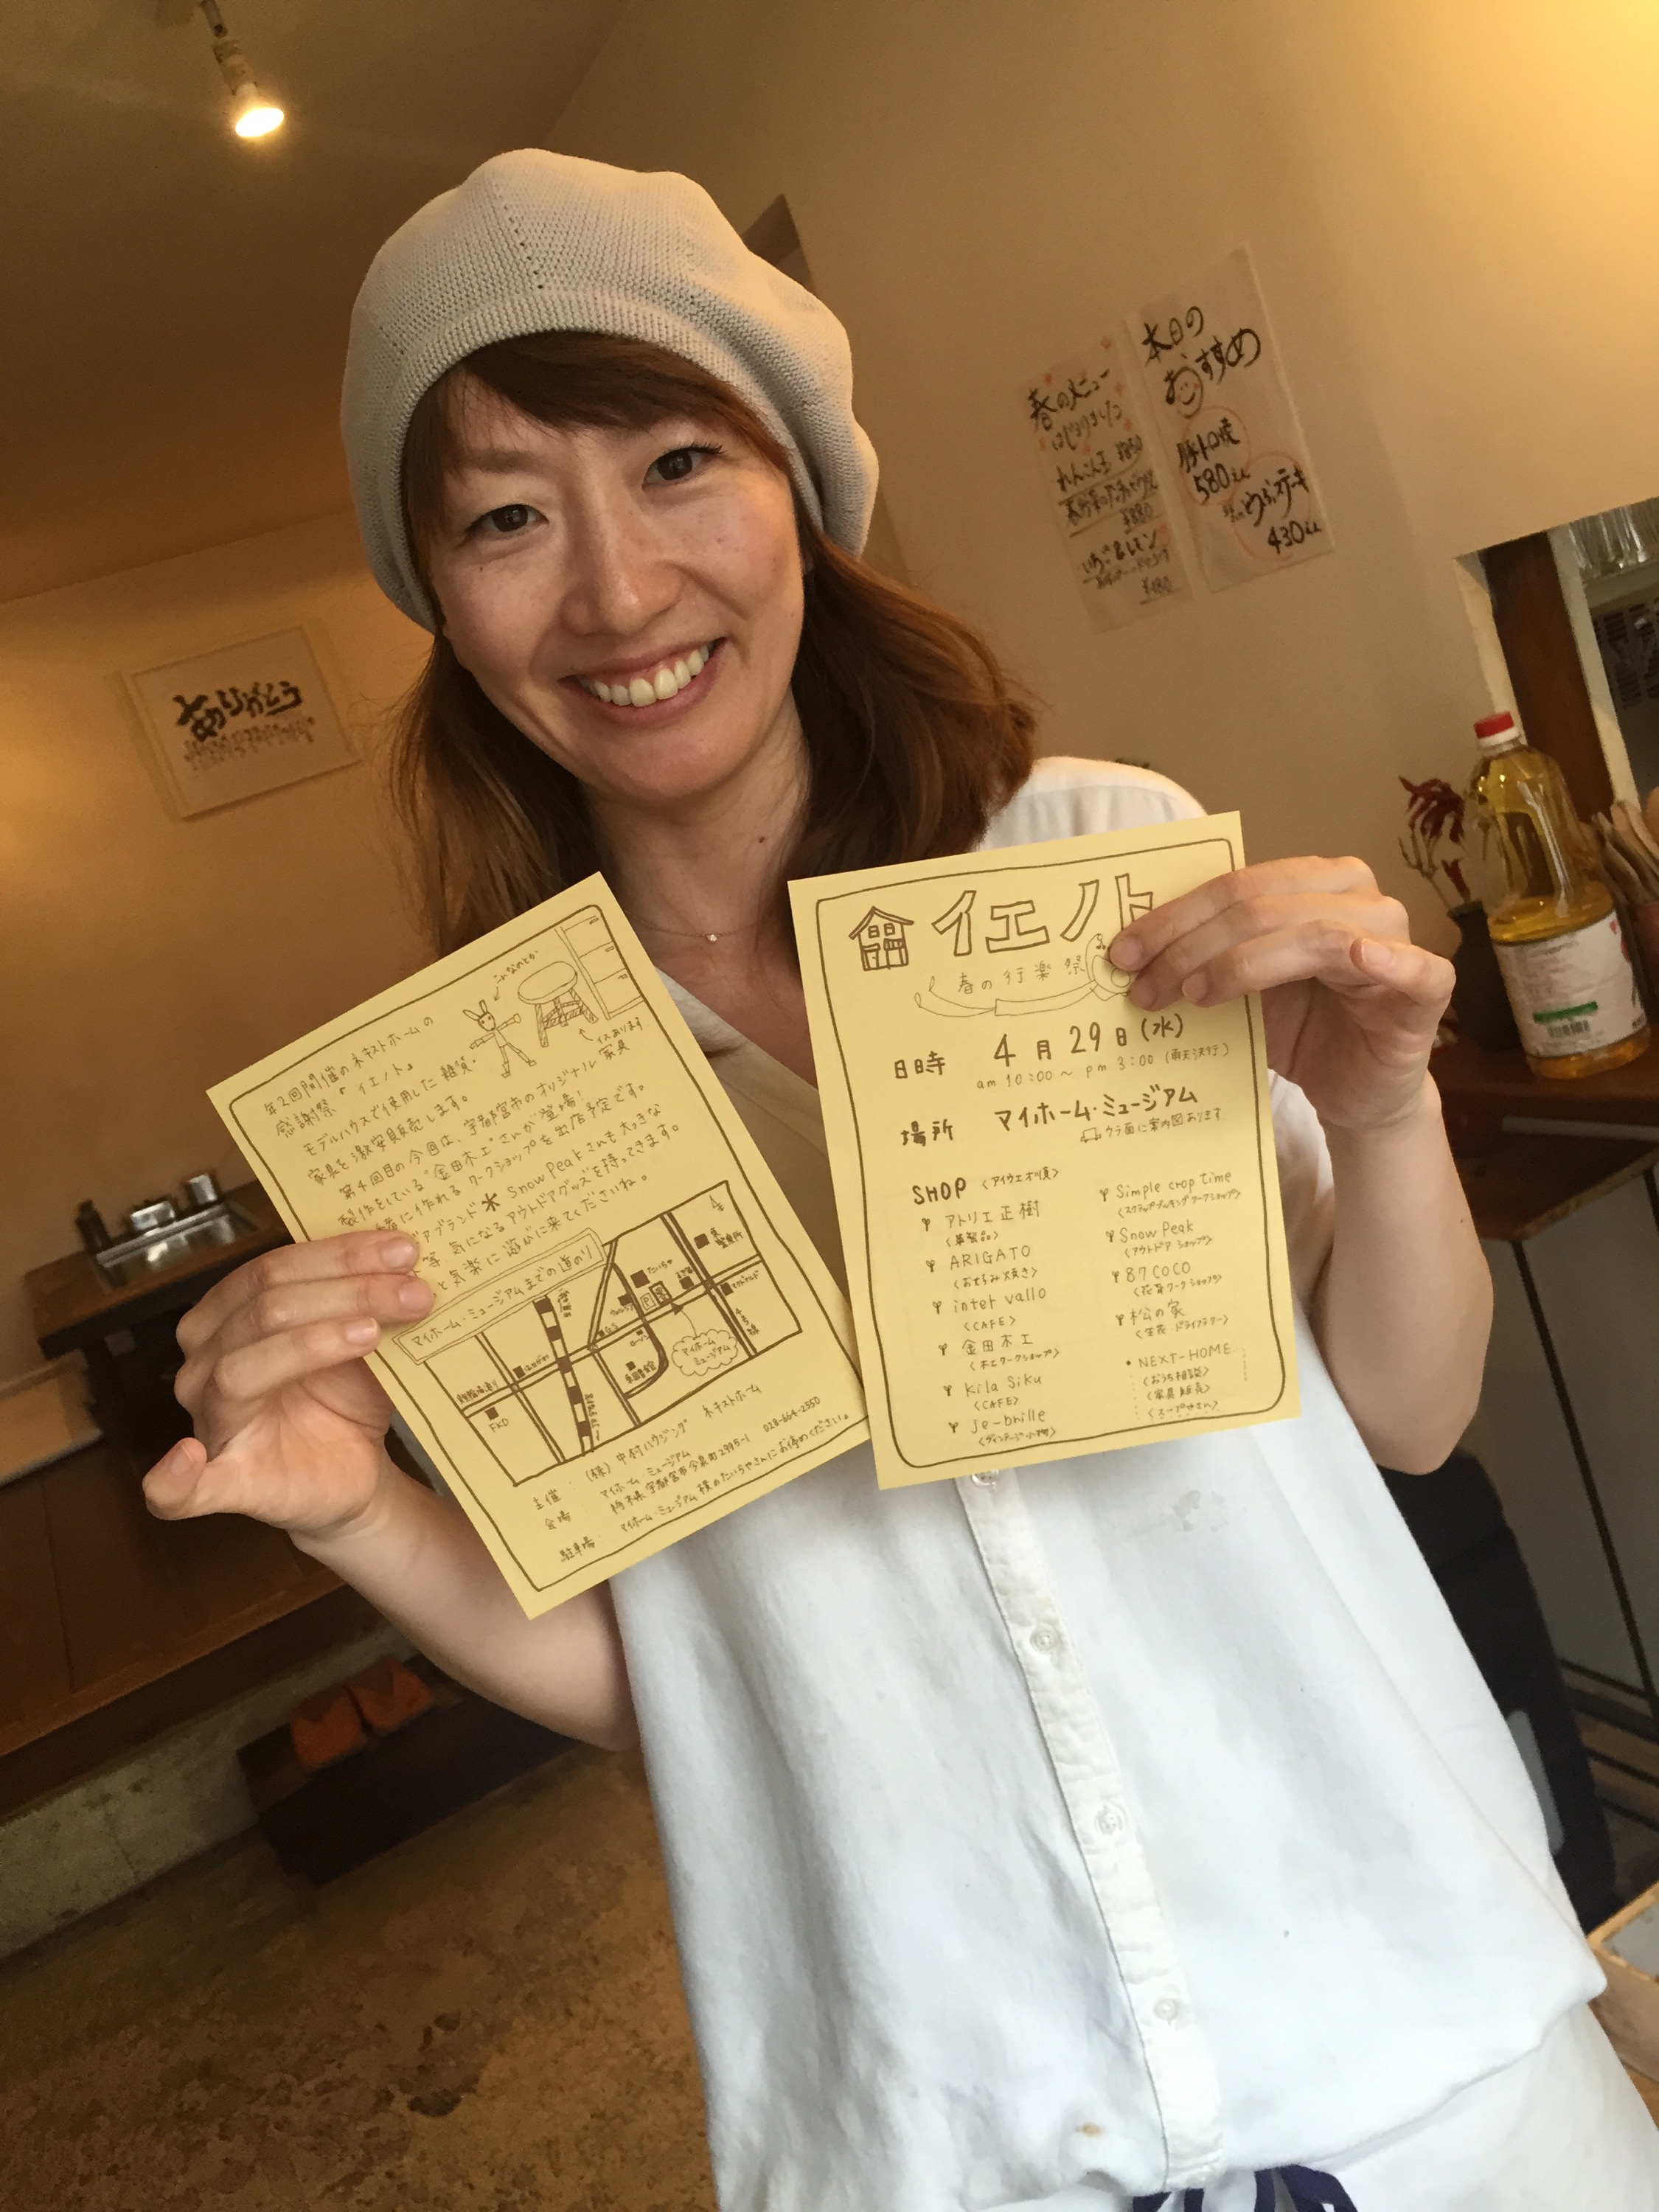 ありがとう
春のメニュー
はじまりました
れんこん玉 ¥850
¥880
いちご&レモン
¥480
本日の
おすすめ
豚トロ焼
580
とうふステーキ
430
こんなのとか
イスあります
家具
年2回開催のネキストホームの
感謝祭『イエノト』
モデルハウスで使用した雑貨・
家具を激安販売します。
第4回目の今回は、宇都宮市のオリジナル
製作をしている"金田木工"さんが登場!
緒に作れるワークショップを出店予定です。
アブランド * Snow Peakさんも大きな
等 気になるアウトドアグッズを持ってきます。
と気楽に遊びに来てくださいね。
マイホーム・ミュージアムまでの道のり
たいらや
P
ローソン
FKD
4号線
マイホーム
ミュージアム
主催: (株)中村ハウジング ネキストホーム 028-664-2550
会場: マイホーム ミュージアム
栃木県宇都宮市今泉町2995-1
駐車場: マイホーム・ミュージアム横のたいらやさんにお停めください。
イエノト
春の行楽祭
日時 4月29日(水)
am 10:00～pm 3:00 (雨天決行)
場所 マイホーム・ミュージアム
ウラ面に案内図あります
SHOP <アイウエオ順>
アトリエ正樹
<革製品>
ARIGATO
<おもろみ焼き>
inter vallo
<CAFE>
金田木工
<木工ワークショップ>
Kila Siku
<CAFE>
je-brille
<ヴィンテージ・小物>
Simple crop time
<スクラップブッキングワークショップ>
Snow Peak
<アウトドアショップ>
87COCO
<花育ワークショップ>
松の家
<生花・ドライフラワー>
• NEXT-HOME
<おうち相談>
<家具販売>